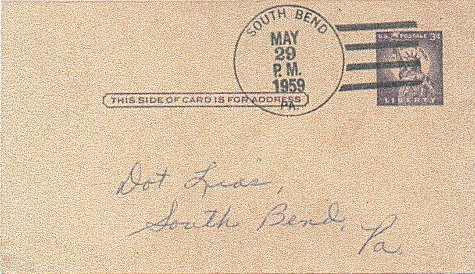 SOUTH BEND
MAY
29
P. M.
1959
PA.
U.S. POSTAGE 3¢
LIBERTY
THIS SIDE OF CARD IS FOR ADDRESS
Dot
South Bend,
Pa.